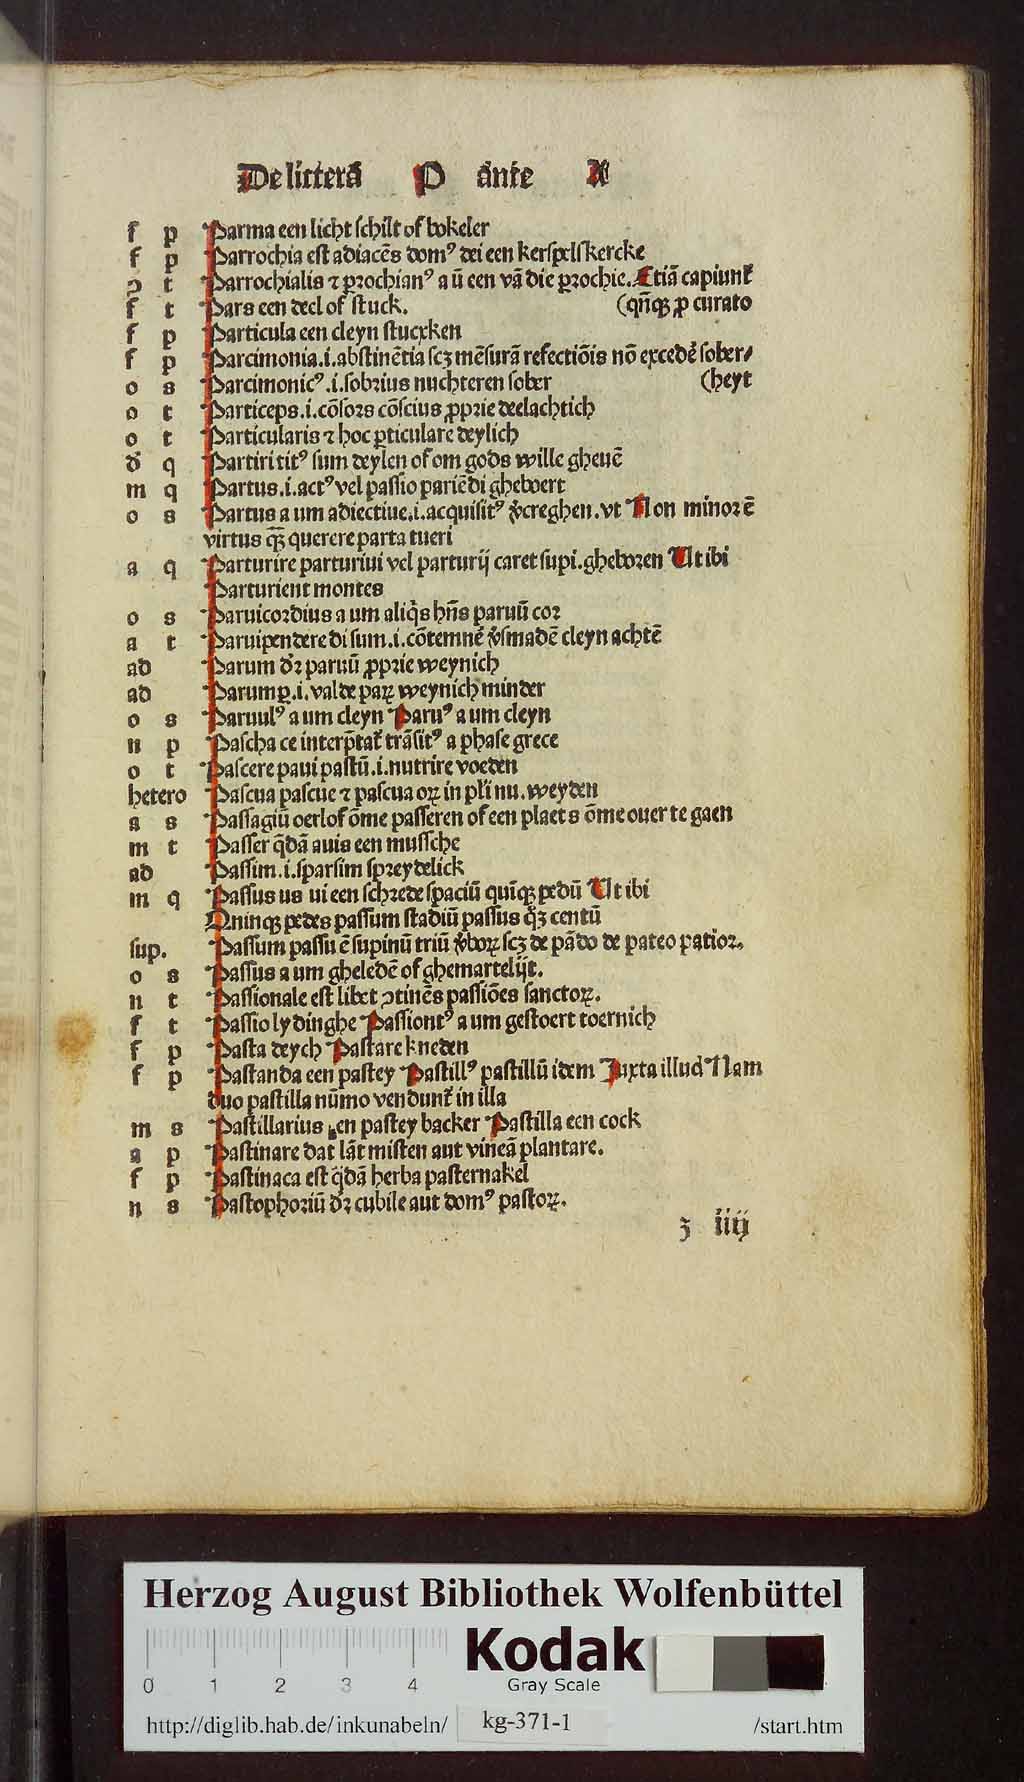 De litterā P ānte A
f p Parma een licht schilt of bokeler
f p Parrochia est adiacēs domꝰ dei een kerspelskercke
ↄ t Parrochialis ⁊ ꝑrochianꝰ a ū een vā die ꝑrochie. Etiā capiunt᷑
f t Pars een deel of stuck. (qn̄qꝫ ꝓ curato
f p Particula een cleyn stucxken
f p Parcimonia .i. abstinētia scꝫ mēsurā refectiōis nō excedēs sober⸗
o s Parcimonicꝰ .i. sobrius nuchteren sober (heyt
o t Particeps .i. cōsors cōscius ꝓprie deelachtich
o t Particularis ⁊ hoc ꝑticulare deylich
d̉ q Partiri titꝰ sum deylen of om gods wille gheuē
m q Partus .i. actꝰ vel passio pariēdi gheboert
o s Partus a um adiectiue .i. acquisitꝰ v̉creghen. vt Non minor ē
virtus q̄ꝫ querere parta tueri
a q Parturire parturiui vel parturij caret supi. gheboren Ut ibi
Parturient montes
o s Paruicordius a um aliq̇s hn̄s paruū cor
a t Paruipendere di sum .i. cōtemnē̉ v̉smadē cleyn achtē
ad Parum dꝛ̉ paruū ꝓprie weynich
ad Parumꝑ .i. valde paꝝ weynich minder
o s Paruulꝰ a um cleyn Paruꝰ a um cleyn
n p Pascha ce interp̄tat᷑ trāsitꝰ a phase grece
o t Pascere paui pastū .i. nutrire voeden
hetero Pascua pascue ⁊ pascua oꝝ in pl̄i nu. weyden
a s Passagiū oerlof ōme passeren of een plaets ōme ouer te gaen
m t Passer q̄dā auis een mussche
ad Passim .i. sparsim spreydelick
m q Passus us ui een schrede spaciū quīqꝫ pedū Ut ibi
Quinqꝫ pedes passum stadiū passus qꝫ̉ centū
sup. Passum passu ē supinū triū v̉boꝝ scꝫ de pādo de pateo patior.
o s Passus a um gheledē of ghemartelijt.
n t Passionale est liber ↄtinēs passiōes sanctoꝝ.
f t Passio lydinghe Passiontꝰ a um gestoert toernich
f p Pasta deych Pastare kneden
f p Pastanda een pastey Pastillꝰ pastillū idem Juxta illud Nam
duo pastilla nūmo vendunt᷑ in illa
m s Pastillarius en pastey backer Pastilla een cock
a p Pastinare dat lāt misten aut vineā plantare.
f p Pastinaca est q̄dā herba pasternakel
n s Pastophoriū dꝛ̉ cubile aut domꝰ pastoꝝ.
ꝫ iiij
Herzog August Bibliothek Wolfenbüttel
0 1 2 3 4
Kodak
Gray Scale
http://diglib.hab.de/inkunabeln/ kg-371-1 /start.htm